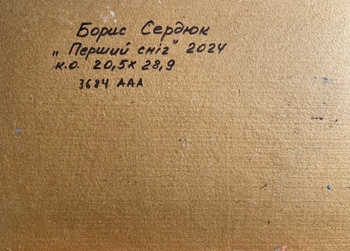 Борис Сердюк
„Перший сніг" 2024
к.о. 20,5х28,9
3684 ААА